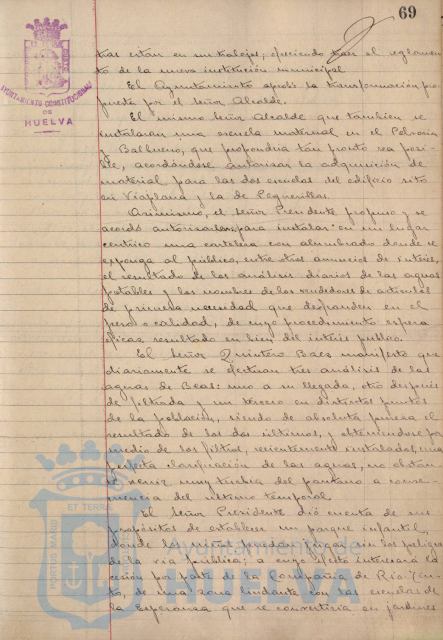 69
AYUNTAMIENTO CONSTITUCIONAL
DE
HUELVA
tras estan en sus trabajos, ofreciendo traer el reglamen-
to de la nueva institución municipal
El Ayuntamiento aprobó la transformación pro-
puesta por el Señor Alcalde.
El mismo Señor Alcalde que tambien se
instalaran una escuela maternal en el Polvorin
y Balbueno, que propondria tan pronto sea posi-
ble, acordándose autorizar la adquisición de
material para las dos escuelas del edificio sito
en Viaplana y la de Pequeñillos.
Asimismo, el Señor Presidente propuso y se
acordó autorizarlo, para instalar en un lugar
centrico una cartelera con alumbrado donde se
exponga al público, entre otros anuncios de interés,
el resultado de los análisis diarios de las aguas
potables y los nombres de los vendedores de articulos
de primera necesidad que defrauden en el
peso o calidad, de cuyo procedimiento espera
eficaz resultado en bien del interés publico.
El Señor Quintero Baez manifestó que
diariamente se efectuan tres análisis de las
aguas de Beas: uno a su llegada, otro después
de filtrada y un tercero en distintos puntos
de la población, siendo de absoluta pureza el
resultado de los dos últimos, y obteniendose por
medio de los filtros, recientemente instalados, una
perfecta clarificación de las aguas, no obstan-
te venir muy turbia del pantano a conse-
cuencia del ultimo temporal.
El Señor Presidente dió cuenta de sus
propósitos de establecer un parque infantil,
donde los niños puedan jugar sin los peligros
de la via publica; a cuyo efecto interesará la
cesión por parte de la Compañia de Rio-Tin-
to, de una zona lindante con las escuelas de
la Esperanza que se convertiria en jardines
PORTUS MARIS
ET TERRAE
Ayuntamiento de
HUELVA